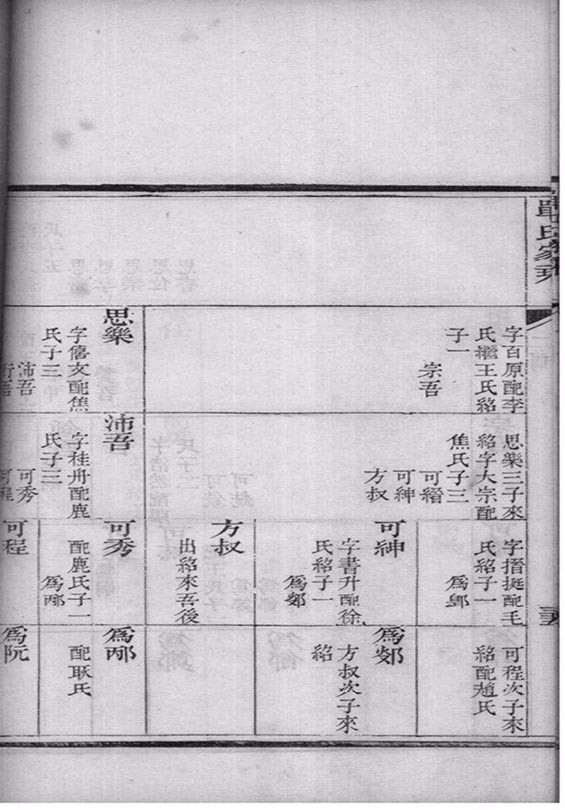 氏家乘
字百原配李
氏繼王氏紹
子一
宗吾
思樂
字僖文配焦
氏子三
沛吾
思樂三子來
紹字大宗配
焦氏子三
可縉
可紳
方叔
沛吾
字桂舟配鹿
氏子三
可秀
可程
字搢挺配毛
氏紹子一
爲
可紳
字書升配徐
氏紹子一
爲郯
方叔
出紹來吾後
可秀
配鹿氏子一
爲邴
可程
可程次子來
紹配趙氏
爲郯
方叔次子來
紹
爲邴
配耿氏
爲阮